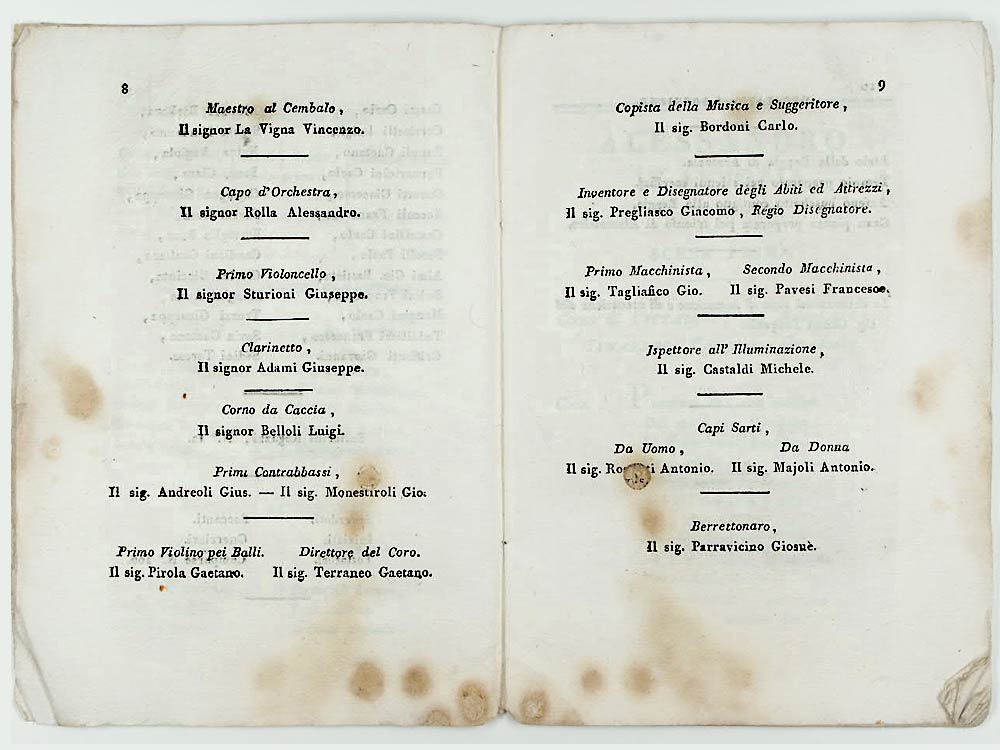 8
Maestro al Cembalo,
Il signor La Vigna Vincenzo.
Capo d'Orchestra,
Il signor Rolla Alessandro.
Primo Violoncello,
Il signor Sturioni Giuseppe.
Clarinetto,
Il signor Adami Giuseppe.
Corno da Caccia,
Il signor Belloli Luigi.
Primi Contrabbassi,
Il sig. Andreoli Gius. — Il sig. Monestiroli Gio.
Primo Violino pei Balli. Direttore del Coro.
Il sig. Pirola Gaetano. Il sig. Terraneo Gaetano.
9
Copista della Musica e Suggeritore,
Il sig. Bordoni Carlo.
Inventore e Disegnatore degli Abiti ed Attrezzi,
Il sig. Pregliasco Giacomo, Regio Disegnatore.
Primo Macchinista, Secondo Macchinista,
Il sig. Tagliafico Gio. Il sig. Pavesi Francesco.
Ispettore all' Illuminazione,
Il sig. Castaldi Michele.
Capi Sarti,
Da Uomo, Da Donna
Il sig. Antonio. Il sig. Majoli Antonio.
Berrettonaro,
Il sig. Parravicino Giosuè.